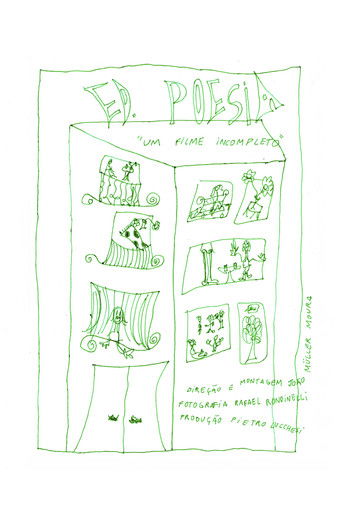 ED. POESIA
"UM FILME INCOMPLETO"
DIREÇÃO E MONTAGEM JOÃO
MÜLLER MOURA
FOTOGRAFIA RAFAEL RONDINELLI
PRODUÇÃO PIETRO LUCCHESI